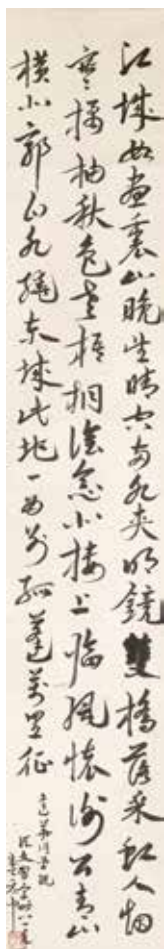 江城如畫裏山晚望晴空兩水夾明鏡雙橋落采虹人烟
寒橘柚秋色老梧桐誰念北樓上臨風懷謝公青山
橫北郭白水繞東城此地一為別孤蓬萬里征